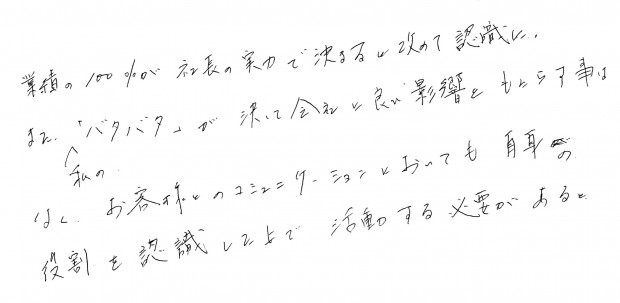 業績の100%が社長の実力で決まると改めて認識し、
また、「バタバタ」が決して会社に良い影響をもたらす事は
私の
なく、お客様とのコミュニケーションにおいても自身の
役割を認識した上で活動する必要があると